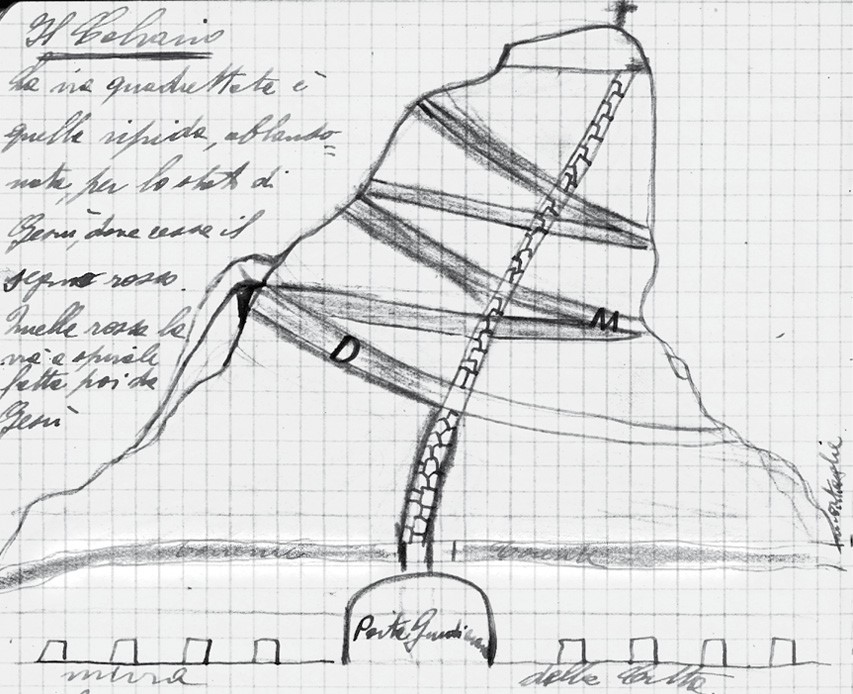 Il Calvario
La via quadrettata è
quella ripida, abbando=
nata, per lo stato di
Gesù, dove cessa il
segno rosso.
Quella rossa la
via a spirale
fatta poi da
Gesù
M
D
torrente torrente
Porta Giudiziaria
mura della Città